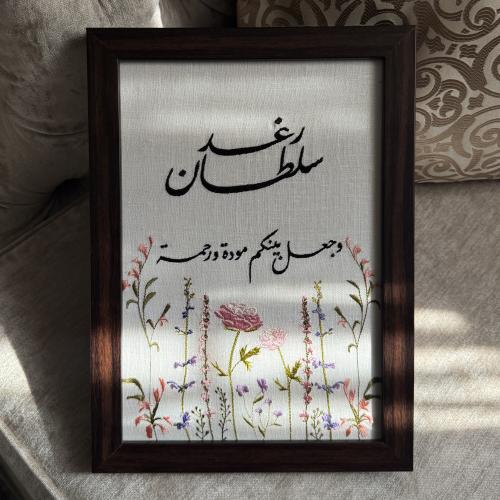 رغد
سلطان
وجعل بينكم مودة ورحمة